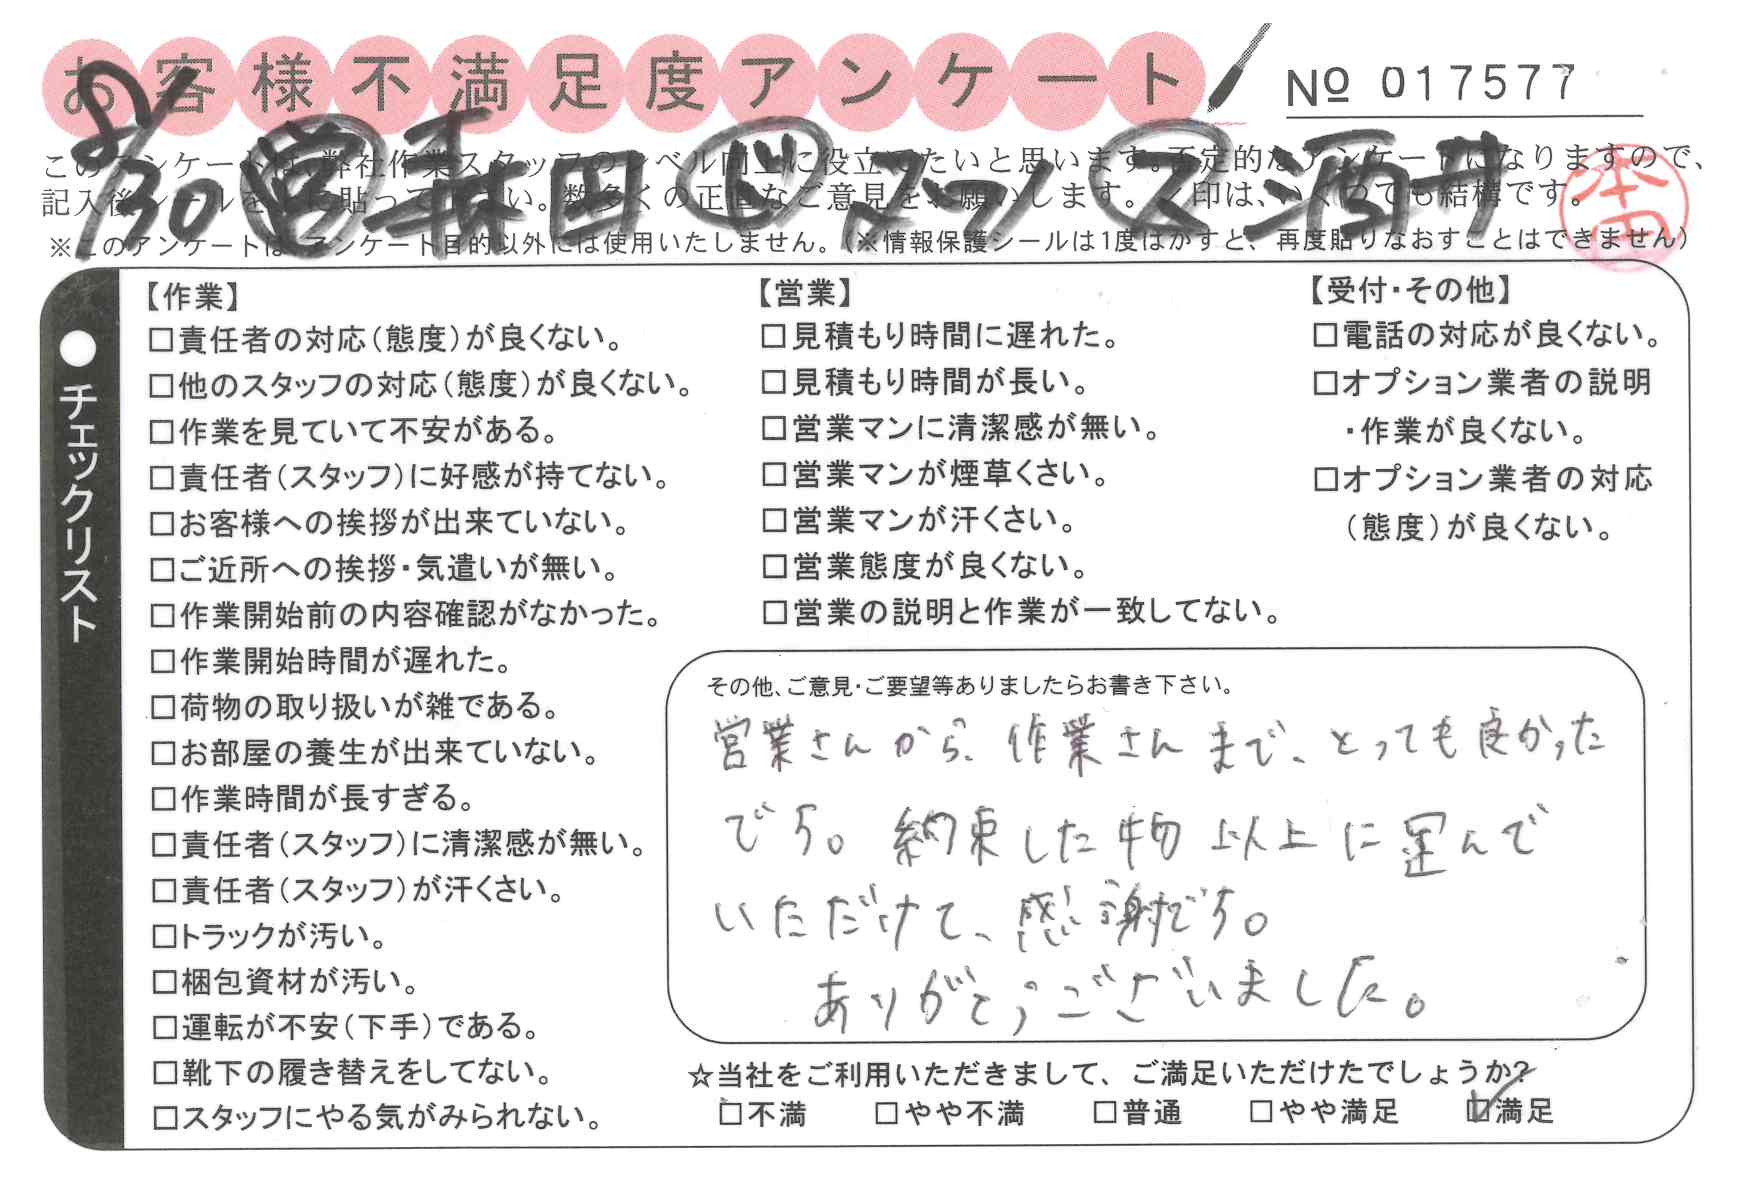 お客様不満足度アンケート
№ 017577
8/30 営 森田 ド マツ ス 酒井
本田
このアンケートは、弊社作業スタッフのレベル向上に役立てたいと思います。否定的なアンケートになりますので、
記入後シールを上に貼って下さい。数多くの正直なご意見をお願いします。✓印は、いくつでも結構です。
※このアンケートは、アンケート目的以外には使用いたしません。（※情報保護シールは1度はがすと、再度貼りなおすことはできません）
●チェックリスト
【作業】
□責任者の対応（態度）が良くない。
□他のスタッフの対応（態度）が良くない。
□作業を見ていて不安がある。
□責任者（スタッフ）に好感が持てない。
□お客様への挨拶が出来ていない。
□ご近所への挨拶・気遣いが無い。
□作業開始前の内容確認がなかった。
□作業開始時間が遅れた。
□荷物の取り扱いが雑である。
□お部屋の養生が出来ていない。
□作業時間が長すぎる。
□責任者（スタッフ）に清潔感が無い。
□責任者（スタッフ）が汗くさい。
□トラックが汚い。
□梱包資材が汚い。
□運転が不安（下手）である。
□靴下の履き替えをしてない。
□スタッフにやる気がみられない。
【営業】
□見積もり時間に遅れた。
□見積もり時間が長い。
□営業マンに清潔感が無い。
□営業マンが煙草くさい。
□営業マンが汗くさい。
□営業態度が良くない。
□営業の説明と作業が一致してない。
【受付・その他】
□電話の対応が良くない。
□オプション業者の説明
・作業が良くない。
□オプション業者の対応
（態度）が良くない。
その他、ご意見・ご要望等ありましたらお書き下さい。
営業さんから、作業さんまで、とっても良かった
です。約束した物以上に運んで
いただけて、感謝です。
ありがとうございました。
☆当社をご利用いただきまして、ご満足いただけたでしょうか？
□不満 □やや不満 □普通 □やや満足 ☑満足